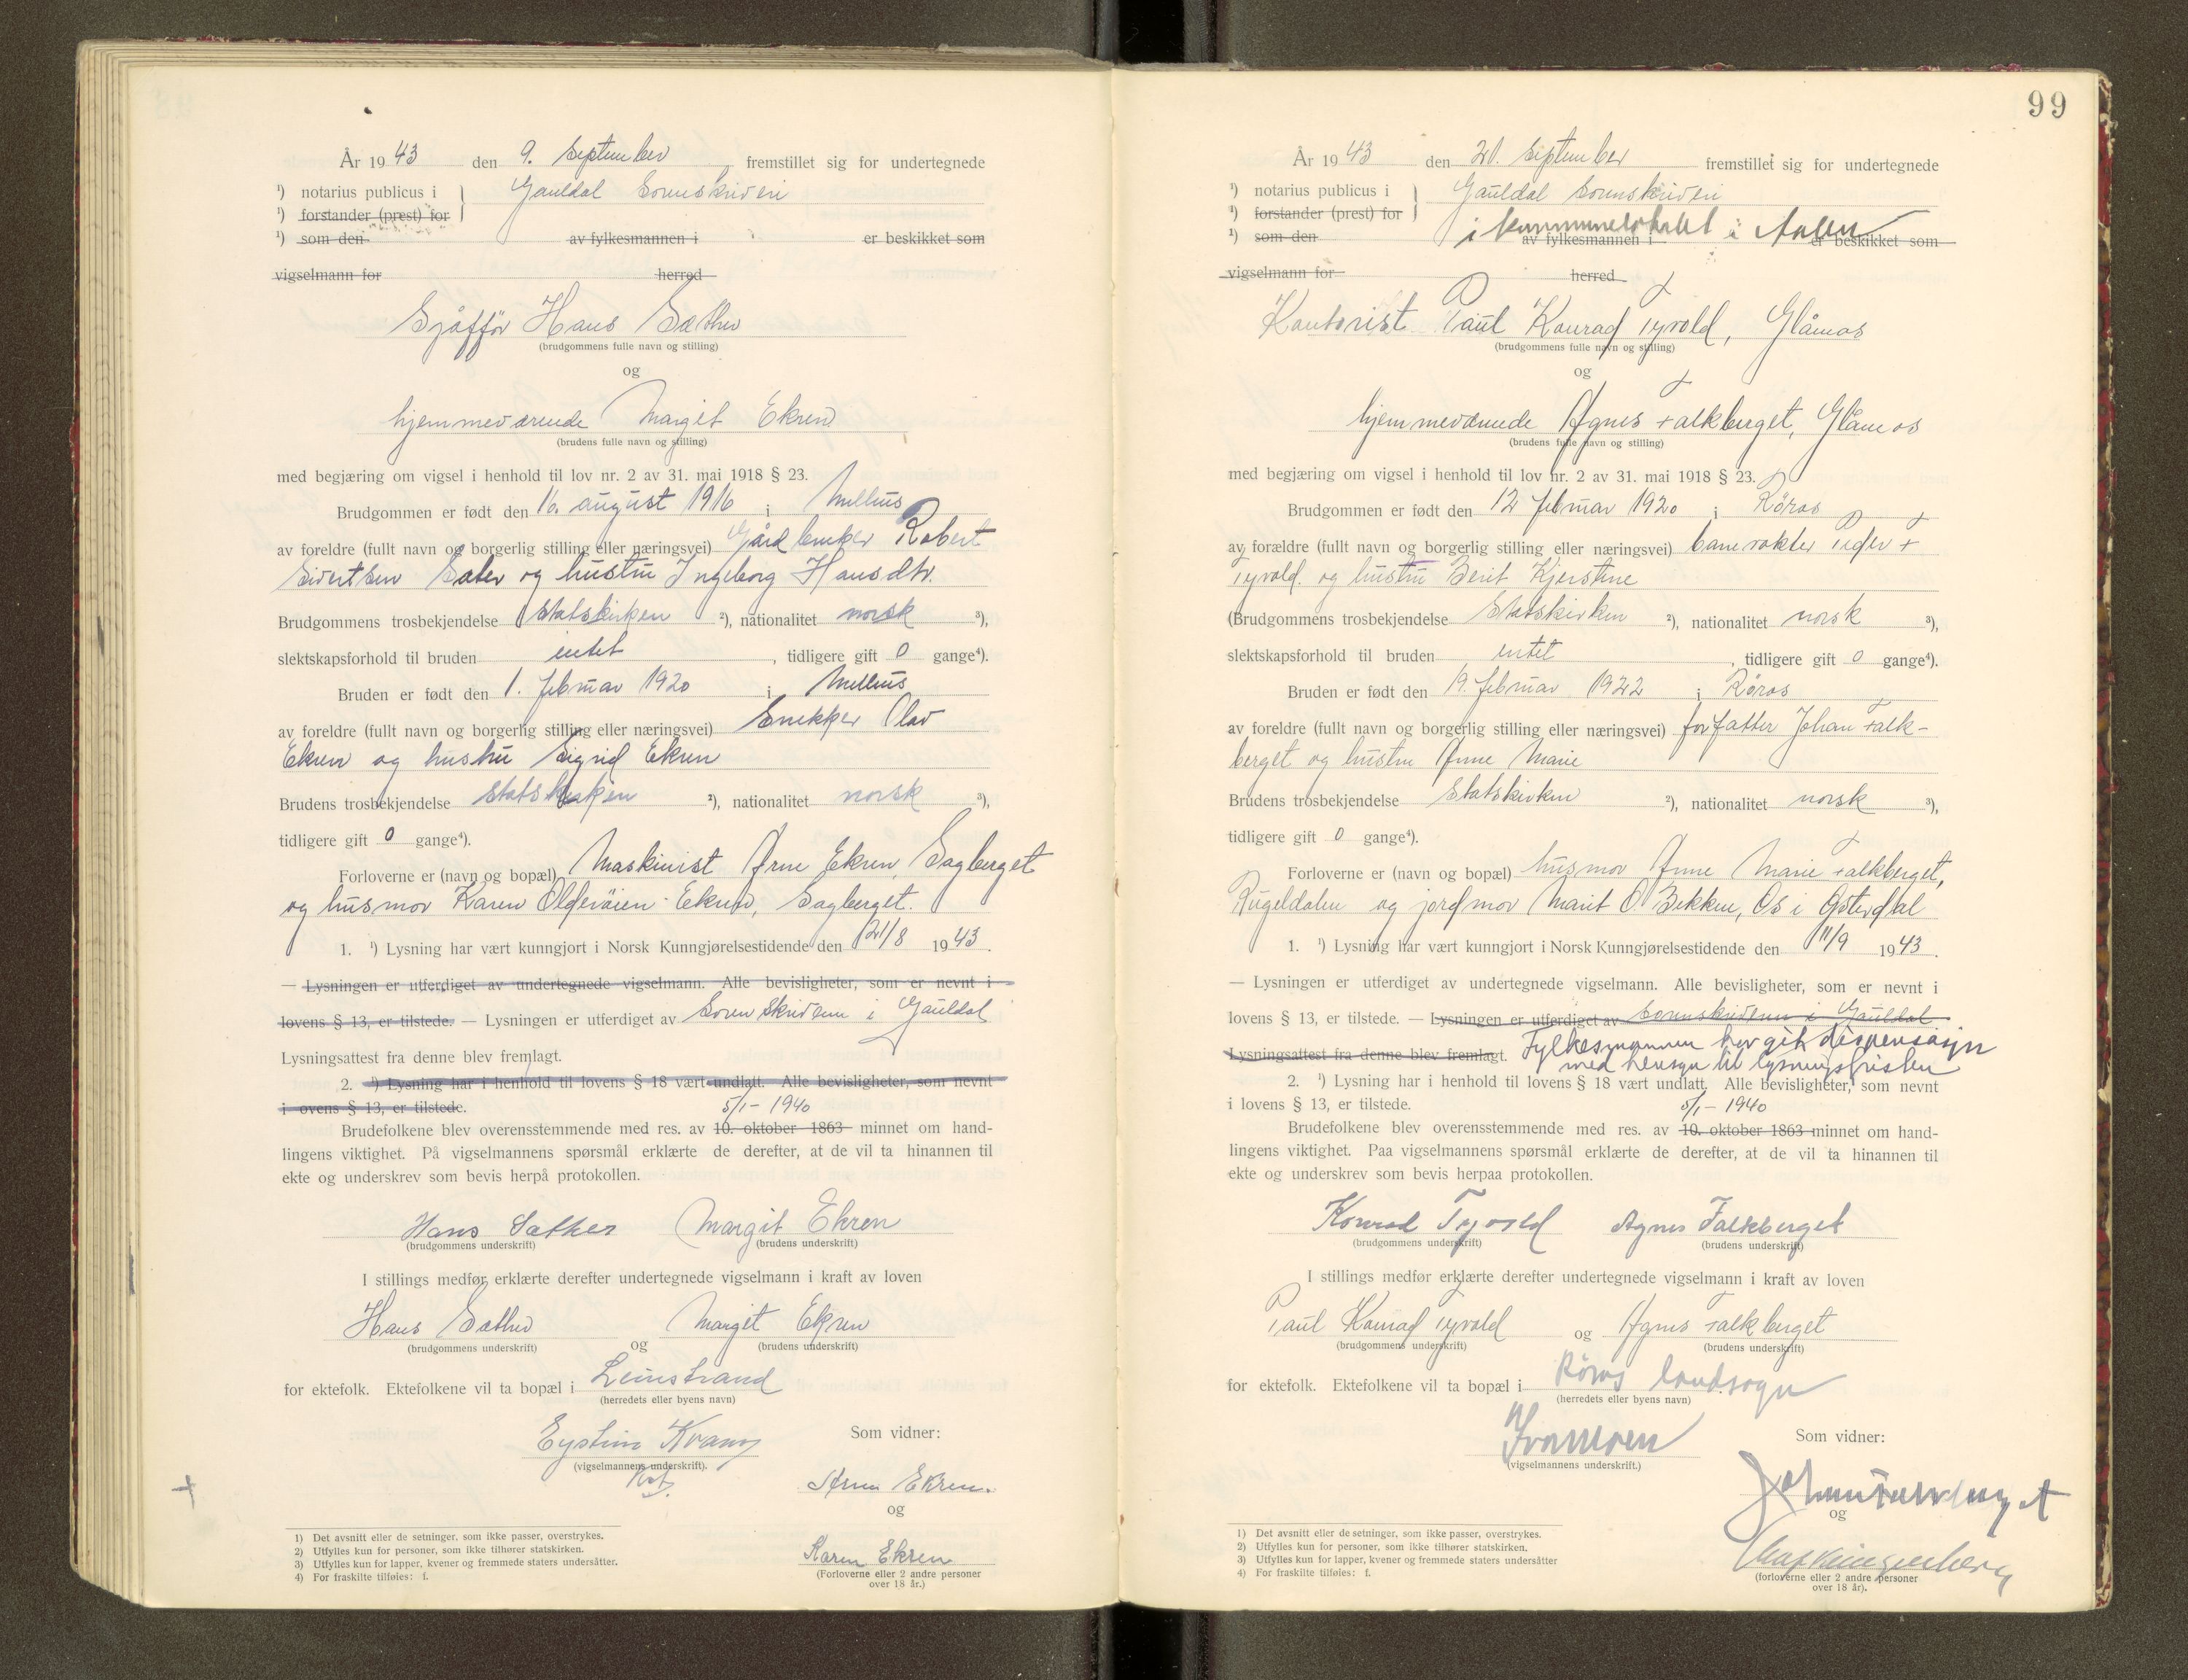 År 1943 den 9. September fremstillet sig for undertegnede
¹) notarius publicus i } Gauldal Sorenskriveri
¹) forstander (prest) for
¹) som den av fylkesmannen i er beskikket som
vigselmann for herred
Sjåffør Hans Sæther
(brudgommens fulle navn og stilling)
og
hjemmeværende Margit Ekren
(brudens fulle navn og stilling)
med begjæring om vigsel i henhold til lov nr. 2 av 31. mai 1918 § 23.
Brudgommen er født den 16. august 1916 i Melhus
av foreldre (fullt navn og borgerlig stilling eller næringsvei) Gårdbruker Robert
Sivertsen Sæter og hustru Ingeborg Hansdtr.
Brudgommens trosbekjendelse Statskirken ²), nationalitet norsk ³),
slektskapsforhold til bruden intet , tidligere gift 0 gange⁴).
Bruden er født den 1. februar 1920 i Melhus
av foreldre (fullt navn og borgerlig stilling eller næringsvei) Snekker Olav
Ekren og hustru Sigrid Ekren
Brudens trosbekjendelse Statskirken ²), nationalitet norsk ³),
tidligere gift 0 gange⁴).
Forloverne er (navn og bopæl) Maskinist Arne Ekren, Sagberget
og husmor Karen Ekren, Sagberget.
1. ¹) Lysning har vært kunngjort i Norsk Kunngjørelsestidende den 21/8 1943.
— Lysningen er utferdiget av undertegnede vigselmann. Alle bevisligheter, som er nevnt i
lovens § 13, er tilstede. — Lysningen er utferdiget av Sorenskriveren i Gauldal
Lysningsattest fra denne blev fremlagt.
2. ¹) Lysning har i henhold til lovens § 18 vært undlatt. Alle bevisligheter, som nevnt
i ovens § 13, er tilstede.
5/1 - 1940
Brudefolkene blev overensstemmende med res. av 10. oktober 1863 minnet om hand-
lingens viktighet. På vigselmannens spørsmål erklærte de derefter, at de vil ta hinannen til
ekte og underskrev som bevis herpå protokollen.
Hans Sæther Margit Ekren
(brudgommens underskrift) (brudens underskrift)
I stillings medfør erklærte derefter undertegnede vigselmann i kraft av loven
Hans Sæther og Margit Ekren
(brudgommens underskrift) (brudens underskrift)
for ektefolk. Ektefolkene vil ta bopæl i Leinstrand
(herredets eller byens navn)
Eystein Kvam
(vigselmannens underskrift).
Som vidner:
Arne Ekren.
og
Karen Ekren
(Forloverne eller 2 andre personer
over 18 år.)
1) Det avsnitt eller de setninger, som ikke passer, overstrykes.
2) Utfylles kun for personer, som ikke tilhører statskirken.
3) Utfylles kun for lapper, kvener og fremmede staters undersåtter.
4) For fraskilte tilføies: f.
99
År 1943 den 21. September fremstillet sig for undertegnede
¹) notarius publicus i } Gauldal Sorenskriveri
¹) forstander (prest) for
i kommunelokalet i Aalen
¹) som den av fylkesmannen i er beskikket som
vigselmann for herred
Kontorist Paul Konrad Tyvold, Glåmos
(brudgommens fulle navn og stilling)
og
hjemmeværende Agnes Falkberget, Glåmos
(brudens fulle navn og stilling)
med begjæring om vigsel i henhold til lov nr. 2 av 31. mai 1918 § 23.
Brudgommen er født den 12 februar 1920 i Røros
av forældre (fullt navn og borgerlig stilling eller næringsvei) banevokter Peder
Tyvold. og hustru Berit Kjerstine
(Brudgommens trosbekjendelse Statskirken ²), nationalitet norsk ³),
slektskapsforhold til bruden intet , tidligere gift 0 gange⁴).
Bruden er født den 19. februar 1922 i Røros
av foreldre (fullt navn og borgerlig stilling eller næringsvei) forfatter Johan Falk-
berget og hustru Anne Marie
Brudens trosbekjendelse Statskirken ²), nationalitet norsk ³),
tidligere gift 0 gange⁴).
Forloverne er (navn og bopæl) husmor Anne Marie Falkberget,
Rugeldalen og jordmor Marit O. Bekken, Os i Østerdal
1. ¹) Lysning har vært kunngjort i Norsk Kunngjørelsestidende den 11/9 1943.
— Lysningen er utferdiget av undertegnede vigselmann. Alle bevisligheter, som er nevnt i
lovens § 13, er tilstede. — Lysningen er utferdiget av Sorenskriveren i Gauldal
Lysningsattest fra denne blev fremlagt. Fylkesmannen har gitt dispensasjon
med hensyn til lysningsfristen
2. ¹) Lysning har i henhold til lovens § 18 vært undlatt. Alle bevisligheter, som nevnt
i lovens § 13, er tilstede.
5/1 - 1940
Brudefolkene blev overensstemmende med res. av 10. oktober 1863 minnet om hand-
lingens viktighet. Paa vigselmannens spørsmål erklærte de derefter, at de vil ta hinannen til
ekte og underskrev som bevis herpaa protokollen.
Konrad Tyvold Agnes Falkberget
(brudgommens underskrift) (brudens underskrift)
I stillings medfør erklærte derefter undertegnede vigselmann i kraft av loven
Paul Konrad Tyvold og Agnes Falkberget
(brudgommens underskrift) (brudens underskrift)
for ektefolk. Ektefolkene vil ta bopæl i Røros landsogn
(herredets eller byens navn)
(vigselmannens underskrift.)
Som vidner:
Johan Falkberget
og
Olaf Klingenberg
(forloverne eller 2 andre personer
over 18 år).
1) Det avsnitt eller de setninger, som ikke passer, overstrykes.
2) Utfylles kun for personer, som ikke tilhører statskirken.
3) Utfylles kun for lapper, kvener og fremmede staters undersåtter
4) For fraskilte tilføies: f.